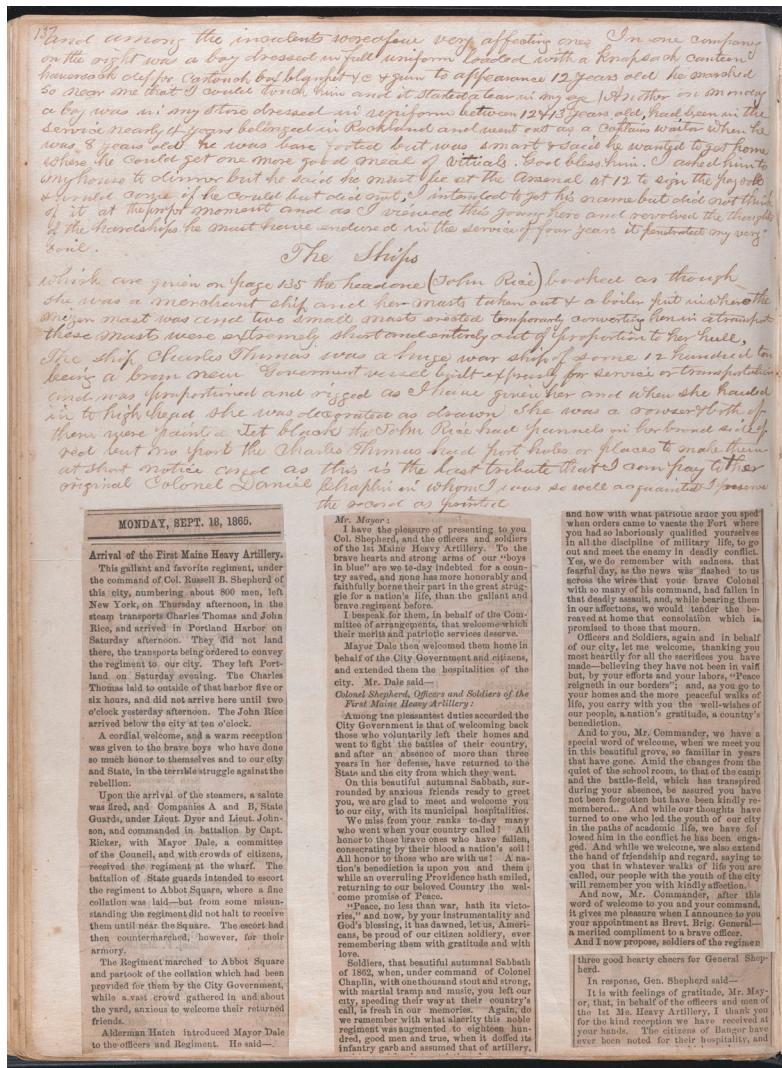 137
and among the incidents were a few very affecting ones In one company
on the right was a boy dressed in full uniform loaded with a knapsack canteen
haversack cartouch box blanket &c & gun to appearance 12 years old he marched
so near me that I could touch him and it started a tear in my eye Another on monday
a boy was in my store dressed in uniform between 12 & 13 years old, had been in the
service nearly 4 years belonged in Rockland and went out as a Captains waitor when he
was 8 years old he was bare footed but was smart & said he wanted to get home
where he could get one more good meal of victuals. God bless him. I asked him to
my house to dinner but he said he must be at the Arsenal at 12 to sign the pay roll
& would come if he could but did not, I intended to get his name but did not think
of it at the proper moment and as I viewed this young hero and revolved the thoughts
of the hardships he must have endured in the service of four years it penetrated my very
soul.
The Ships
which are given on page 135 the head one (John Rice) looked as though
she was a merchant ship and her masts taken out & a boiler put in where the
mizen mast was and two small masts erected temporarly converting her in a transport
these masts were extremely short and entirely out of proportion to her hull,
The ship Charles Thomas was a huge war ship of some 12 hundred ton
being a bran new Goverment vessel built expressly for service or transportation
and was proportioned and rigged as I have given her and when she hauled
in to high head she was decorated as drawn She was a rowser & both of
them were painted Jet black the John Rice had pannels on her broad side of
red but no port the Charles Thomas had port holes or places to make them
at short notice and as this is the last tribute that I can pay to the
original Colonel Daniel Chaplin in whom I was so well acquainted I
the record as printed
MONDAY, SEPT. 18, 1865.
Arrival of the First Maine Heavy Artillery.
This gallant and favorite regiment, under
the command of Col. Russell B. Shepherd of
this city, numbering about 800 men, left
New York, on Thursday afternoon, in the
steam transports Charles Thomas and John
Rice, and arrived in Portland Harbor on
Saturday afternoon. They did not land
there, the transports being ordered to convey
the regiment to our city. They left Port-
land on Saturday evening. The Charles
Thomas laid to outside of that harbor five or
six hours, and did not arrive here until two
o'clock yesterday afternoon. The John Rice
arrived below the city at ten o'clock.
A cordial welcome, and a warm reception
was given to the brave boys who have done
so much honor to themselves and to our city
and State, in the terrible struggle against the
rebellion.
Upon the arrival of the steamers, a salute
was fired, and Companies A and B, State
Guards, under Lieut. Dyer and Lieut. John-
son, and commanded in battalion by Capt.
Ricker, with Mayor Dale, a committee
of the Council, and with crowds of citizens,
received the regiment at the wharf. The
battalion of State guards intended to escort
the regiment to Abbot Square, where a fine
collation was laid—but from some misun-
standing the regiment did not halt to receive
them until near the Square. The escort had
then countermarched, however, for their
armory.
The Regiment marched to Abbot Square
and partook of the collation which had been
provided for them by the City Government,
while a vast crowd gathered in and about
the yard, anxious to welcome their returned
friends.
Alderman Hatch introduced Mayor Dale
to the officers and Regiment. He said—
Mr. Mayor:
I have the pleasure of presenting to you
Col. Shepherd, and the officers and soldiers
of the 1st Maine Heavy Artillery. To the
brave hearts and strong arms of our "boys
in blue" are we to-day indebted for a coun-
try saved, and none has more honorably and
faithfully borne their part in the great strug-
gle for a nation's life, than the gallant and
brave regiment before.
I bespeak for them, in behalf of the Com-
mittee of arrangements, that welcome which
their merits and patriotic services deserve.
Mayor Dale then welcomed them home in
behalf of the City Government and citizens,
and extended them the hospitalities of the
city. Mr. Dale said—
Colonel Shepherd, Officers and Soldiers of the
First Maine Heavy Artillery:
Among tne pleasantest duties accorded the
City Government is that of welcoming back
those who voluntarily left their homes and
went to fight the battles of their country,
and after an absence of more than three
years in her defense, have returned to the
State and the city from which they went.
On this beautiful autumnal Sabbath, sur-
rounded by anxious friends ready to greet
you, we are glad to meet and welcome you
to our city, with its municipal hospitalities.
We miss from your ranks to-day many
who went when your country called! All
honor to those brave ones who have fallen,
consecrating by their blood a nation's soil!
All honor to those who are with us! A na-
tion's benediction is upon you and them;
while an overruling Providence hath smiled,
returning to our beloved Country the wel-
come promise of Peace.
"Peace, no less than war, hath its victo-
ries," and now, by your instrumentality and
God's blessing, it has dawned, let us, Ameri-
cans, be proud of our citizen soldiery, ever
remembering them with gratitude and with
love.
Soldiers, that beautiful autumnal Sabbath
of 1862, when, under command of Colonel
Chaplin, with one thousand stout and strong,
with martial tramp and music, you left our
city, speeding their way at their country's
call, is fresh in our memories. Again, do
we remember with what alacrity this noble
regiment was augmented to eighteen hun-
dred, good men and true, when it doffed its
infantry garb and assumed that of artillery,
and how with what patriotic ardor you sped
when orders came to vacate the Fort where
you had so laboriously qualified yourselves
in all the discipline of military life, to go
out and meet the enemy in deadly conflict.
Yes, we do remember with sadness. that
fearful day, as the news was flashed to us
across the wires that your brave Colonel
with so many of his command, had fallen in
that deadly assault, and, while bearing them
in our affections, we would tender the be-
reaved at home that consolation which is
promised to those that mourn.
Officers and Soldiers, again and in behalf
of our city, let me welcome, thanking you
most heartily for all the sacrifices you have
made—believing they have not been in vain
but, by your efforts and your labors, "Peace
reigneth in our borders"; and, as you go to
your homes and the more peaceful walks of
life, you carry with you the well-wishes of
our people, a nation's gratitude, a country's
benediction.
And to you, Mr. Commander, we have a
special word of welcome, when we meet you
in this beautiful grove, so familiar in years
that have gone. Amid the changes from the
quiet of the school room, to that of the camp
and the battle-field, which has transpired
during your absence, be assured you have
not been forgotten but have been kindly re-
membered.. And while our thoughts have
turned to one who led the youth of our city
in the paths of academic life, we have fol
lowed him in the conflict he has been enga-
ged. And while we welcome, we also extend
the hand of friendship and regard, saying to
you that in whatever walks of life you are
called, our people with the youth of the city
will remember you with kindly affection.
And now, Mr. Commander, after this
word of welcome to you and your command,
it gives me pleasure when I announce to you
your appointment as Brevt. Brig. General—
a merited compliment to a brave officer.
And I now propose, soldiers of the regimen
three good hearty cheers for General Shep-
herd.
In response, Gen. Shepherd said—
It is with feelings of gratitude, Mr. May-
or, that, in behalf of the officers and men of
the 1st Me. Heavy Artillery, I thank you
for the kind reception we have received at
your hands. The citizens of Bangor have
ever been noted for their hospitality, and